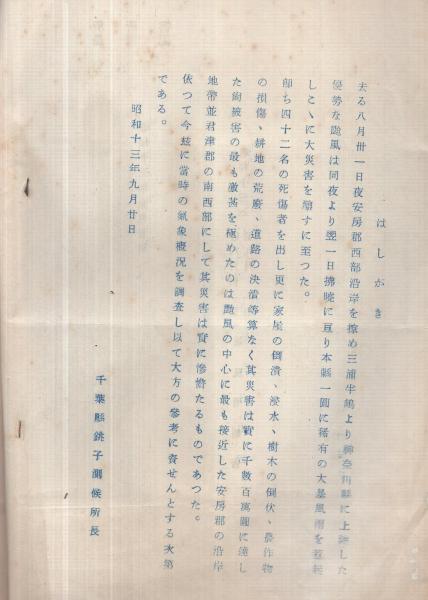 はしがき
去る八月卅一日夜安房郡西部沿岸を掠め三浦半島より神奈川縣に上陸した
優勢な颱風は同夜より翌一日拂曉に亘り本縣一圓に稀有の大暴風雨を
しこゝに大災害を齎すに至つた。
卽ち四十二名の死傷者を出し更に家屋の倒潰、浸水、樹木の倒伏、農作物
の損傷、耕地の荒廢、道路の決潰等算なく其災害は實に千數百萬圓に達し
た尙被害の最も激甚を極めたのは颱風の中心に最も接近した安房郡の沿岸
地帶並君津郡の南西部にして其災害は實に慘憺たるものであつた。
依つて今玆に當時の氣象槪況を調査し以て大方の參考に資せんとする次第
である。
昭和十三年九月廿日
千葉縣銚子測候所長